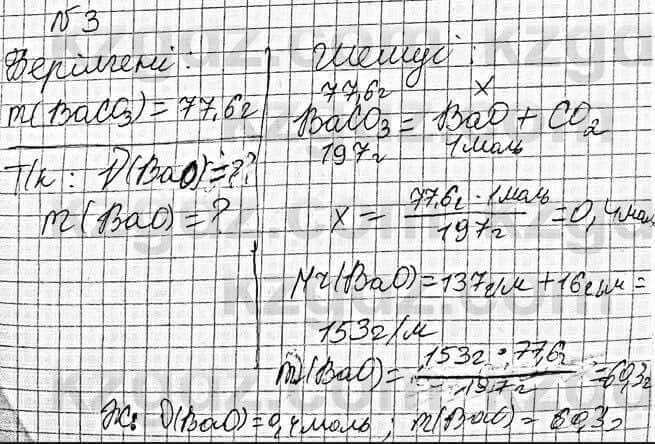 №3
Берілгені:
m(BaCO₃) = 77,6г
Т/к: ν(BaO) = ?
m(BaO) = ?
Шешуі:
77,6г x
BaCO₃ = BaO + CO₂
197г 1моль
x = 77,6г · 1моль / 197г = 0,4моль
Mr(BaO) = 137г/м + 16г/м =
153г/м
m(BaO) = 153г · 77,6г / 197г = 60,3г
Ж: ν(BaO) = 0,4моль; m(BaO) = 60,3г